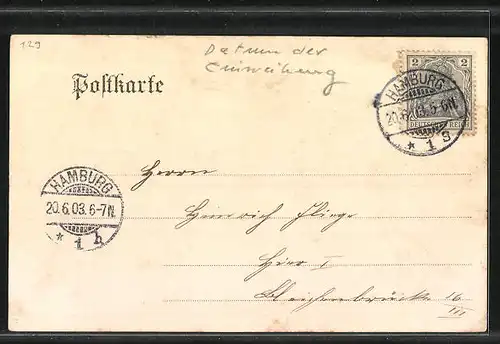 129
Datum der
Einweihung
Postkarte
2 2
DEUTSCHES REICH
HAMBURG
20.6.03. 5-6N.
* 1 s
HAMBURG
20.6.03. 6-7N.
* 1 h
Herrn
Heinrich Fliege
Hier I
Bleichenbrücke 16
III